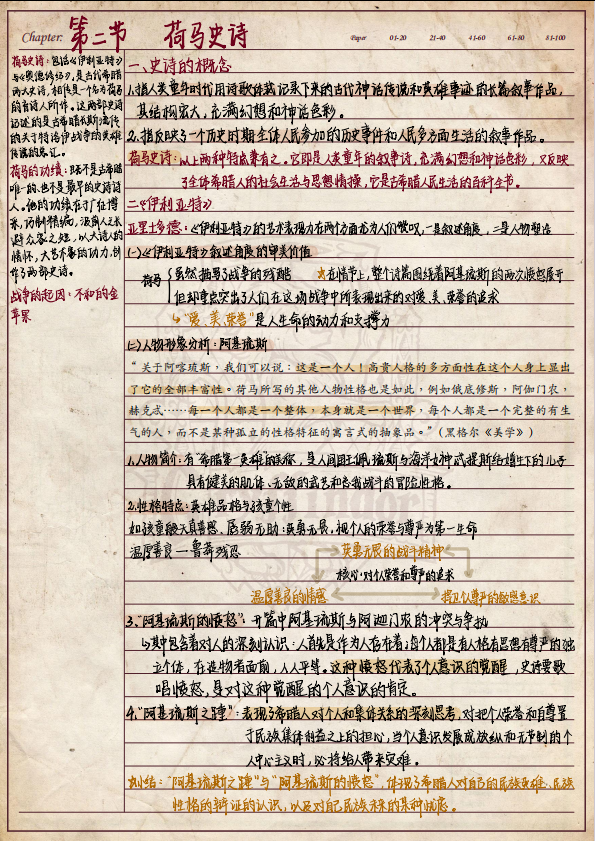 Chapter: 第二节 荷马史诗
Paper 01-20 21-40 41-60 61-80 81-100
荷马史诗：包括《伊利亚特》
与《奥德修纪》，是古代希腊
两大史诗，相传是一个名为荷马
的盲诗人所作。这两部史诗
记述的是古希腊长期流传
的关于特洛伊战争的英雄
传说的总汇。
荷马的功绩：既不是古希腊
唯一的，也不是最早的史诗诗
人。他的功绩在于广征博
采，巧制精编，汲前人之长
避众客之短，以大诗人的
情怀，大艺术家的功力，创
作了两部史诗。
战争的起因：不和的金
苹果
一、史诗的概念
1.指人类童年时代用诗歌体裁记录下来的古代神话传说和英雄事迹的长篇叙事作品，
其结构宏大，充满幻想和神话色彩。
2.指反映了一个历史时期全体人民参加的历史事件和人民多方面生活的叙事作品。
荷马史诗：以上两种特点兼有之。它即是人类童年的叙事诗，充满幻想和神话色彩，又反映
了全体希腊人的社会生活与思想情操，它是古希腊人民生活的百科全书。
二《伊利亚特》
亚里士多德：《伊利亚特》的艺术表现力在两个方面尤为人们赞叹，一是叙述角度，二是人物塑造
(一)《伊利亚特》叙述角度的审美价值
荷马 虽然描写了战争的残酷 ☆在情节上，整个诗篇围绕着阿基琉斯的两次愤怒展开
但却重点突出了人们在这场战争中所表现出来的对爱、美、荣誉的追求
↳“爱、美、荣誉”是人生命的动力和支撑力
(二)人物形象分析：阿基琉斯
“关于阿喀琉斯，我们可以说：这是一个人！高贵人格的多方面性在这个人身上显出
了它的全部丰富性。荷马所写的其他人物性格也是如此，例如俄底修斯，阿伽门农，
赫克忒……每一个人都是一个整体，本身就是一个世界，每个人都是一个完整的有生
气的人，而不是某种孤立的性格特征的寓言式的抽象品。”（黑格尔《美学》）
1.人物简介：有“希腊第一英雄”的美称，是人间国王佩琉斯与海洋女神忒提斯结婚生下的儿子
具有健美的肌体、无敌的武艺和忠我战斗的冒险性格。
2.性格特点：英雄品格与孩童个性
如孩童般天真善感、孱弱无助：英勇无畏，把个人的荣誉与尊严为第一生命
温厚善良—鲁莽残忍 英勇无畏的战斗精神
核心：对个人荣誉和尊严的追求
温厚善良的情感 捍卫个人尊严的敏感意识
3.“阿基琉斯的愤怒”：开篇中阿基琉斯与阿迦门农的冲突与争执
↳其中包含着对人的深刻认识：人首先是作为人存在着，每个人都是有人格有思想有尊严的独
立个体，在造物者面前，人人平等。这种愤怒代表了个人意识的觉醒，史诗要歌
唱愤怒，是对这种觉醒的个人意识的肯定。
4.“阿基琉斯之踵”：表现了希腊人对个人和集体关系的深刻思考，对把个人荣誉和自尊置
于民族集体利益之上的担心，当个人意识发展成放纵和无节制的个
人中心主义时，必将给人带来灾难。
☆小结：“阿基琉斯之踵”与“阿基琉斯的愤怒”，体现了希腊人对自己的民族英雄、民族
性格的辩证的认识，以及对自己民族未来的某种忧虑。